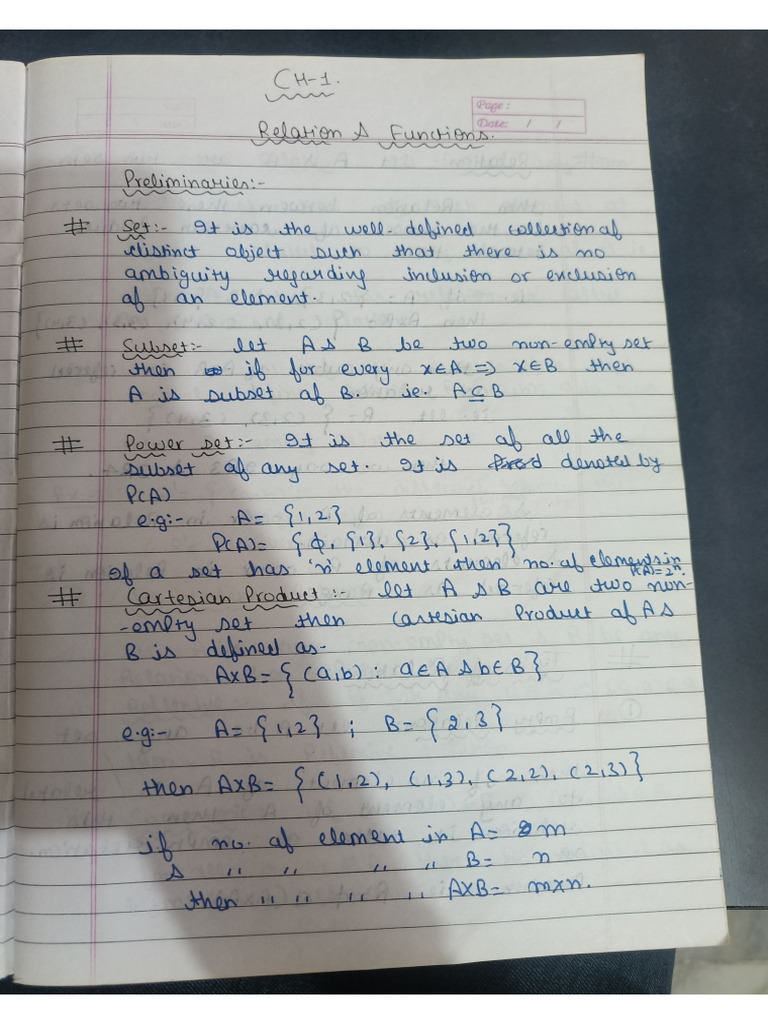 CH-1.
Page:
Date: / /
Relation & Functions.
Preliminaries:-
# Set:- It is the well-defined collection of
distinct object such that there is no
ambiguity regarding inclusion or exclusion
of an element.
# Subset:- let A & B be two non-empty set
then if for every x∈A ⇒ x∈B then
A is subset of B. ie. A⊆B
# Power set:- It is the set of all the
subset of any set. It is denoted by
P(A)
e.g:- A= {1,2}
P(A)= {ϕ, {1}, {2}, {1,2}}
If a set has 'n' element then no. of elements in
P(A)=2ⁿ.
# Cartesian Product:- let A & B are two non-
-empty set then Cartesian Product of A &
B is defined as-
A×B= {(a,b) : a∈A & b∈B}
e.g:- A= {1,2} ; B= {2,3}
then A×B= {(1,2), (1,3), (2,2), (2,3)}
if no. of element in A= m
& " " " " B= n
then " " " " A×B= m×n.